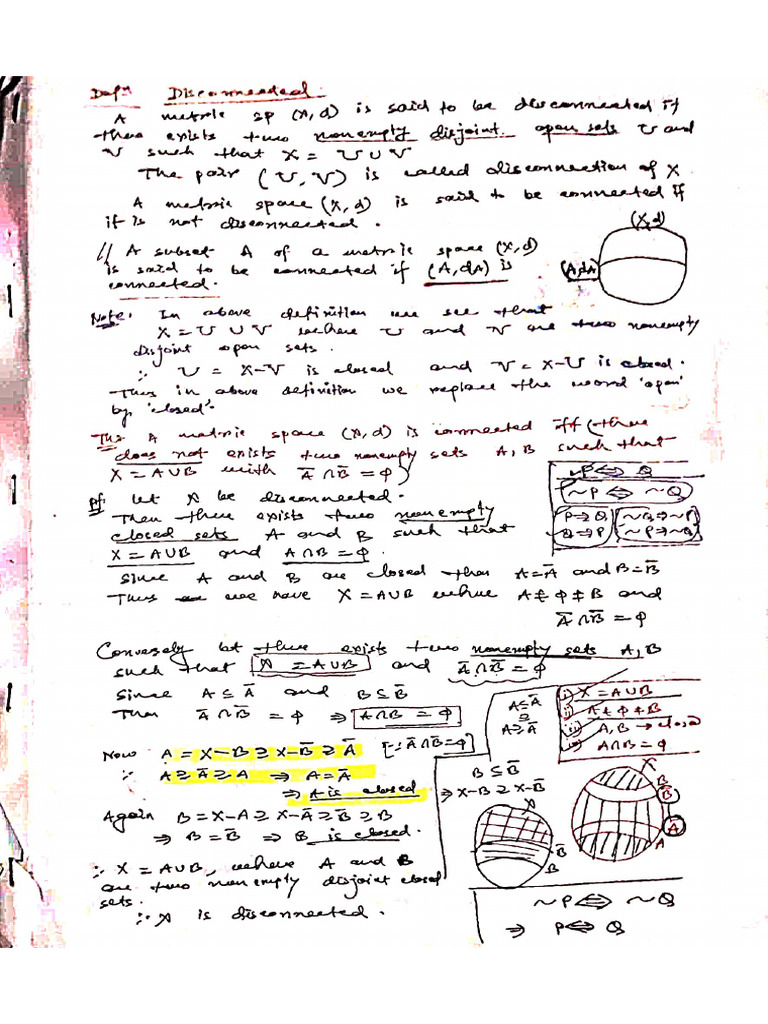 Defn Disconnected:
A metric sp (X, d) is said to be disconnected if
there exists two nonempty disjoint open sets U and
V such that X = U ∪ V
The pair (U, V) is called disconnection of X
A metric space (X, d) is said to be connected if
it is not disconnected.
(X, d)
// A subset A of a metric space (X, d)
is said to be connected if (A, dA) is
(A, dA)
connected.
Note: In above definition we see that
X = U ∪ V where U and V are two nonempty
disjoint open sets.
∴ U = X-V is closed and V = X-U is closed.
Thus in above definition we replace the word 'open'
by 'closed'.
Thm A metric space (X, d) is connected iff (there
does not exists two nonempty sets A, B such that
X = A∪B with A̅ ∩ B̅ = φ)
P ⇔ Q
~P ⇔ ~Q
P⇒Q
Q⇒P
~Q⇒~P
~P⇒~Q
Pf: Let X be disconnected.
Then there exists two nonempty
closed sets A and B such that
X = A∪B and A∩B = φ.
Since A and B are closed then A = A̅ and B = B̅
Thus we have X = A∪B where A ≠ φ ≠ B and
A̅ ∩ B̅ = φ
Conversely let there exists two nonempty sets A, B
such that X = A∪B and A̅ ∩ B̅ = φ
Since A ⊆ A̅ and B ⊆ B̅
Then A̅ ∩ B̅ = φ ⇒ A∩B = φ
A ⊆ A̅
A ⊇ A̅
i) X = A∪B
ii) A ≠ φ ≠ B
iii) A, B → closed
A∩B = φ
Now A = X-B ⊇ X-B̅ ⊇ A̅ [∵ A̅∩B̅ = φ]
∴ A ⊇ A̅ ⊇ A ⇒ A = A̅
⇒ A is closed
B ⊆ B̅
⇒ X-B ⊇ X-B̅
X
B
B̅
A̅
A
X
B̅
B
Again B = X-A ⊇ X-A̅ ⊇ B̅ ⊇ B
⇒ B = B̅ ⇒ B is closed.
∴ X = A∪B, where A and B
are two nonempty disjoint closed
sets.
∴ X is disconnected.
~P ⇔ ~Q
⇒ P ⇔ Q